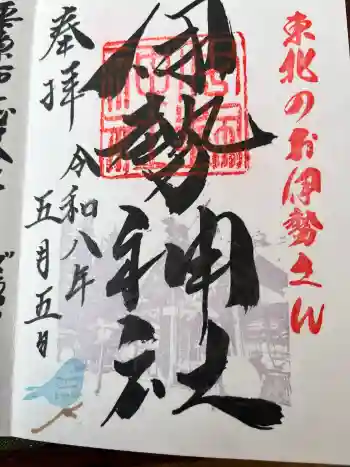 東北のお伊勢さん
伊勢神社
奉拝
令和八年
五月五日